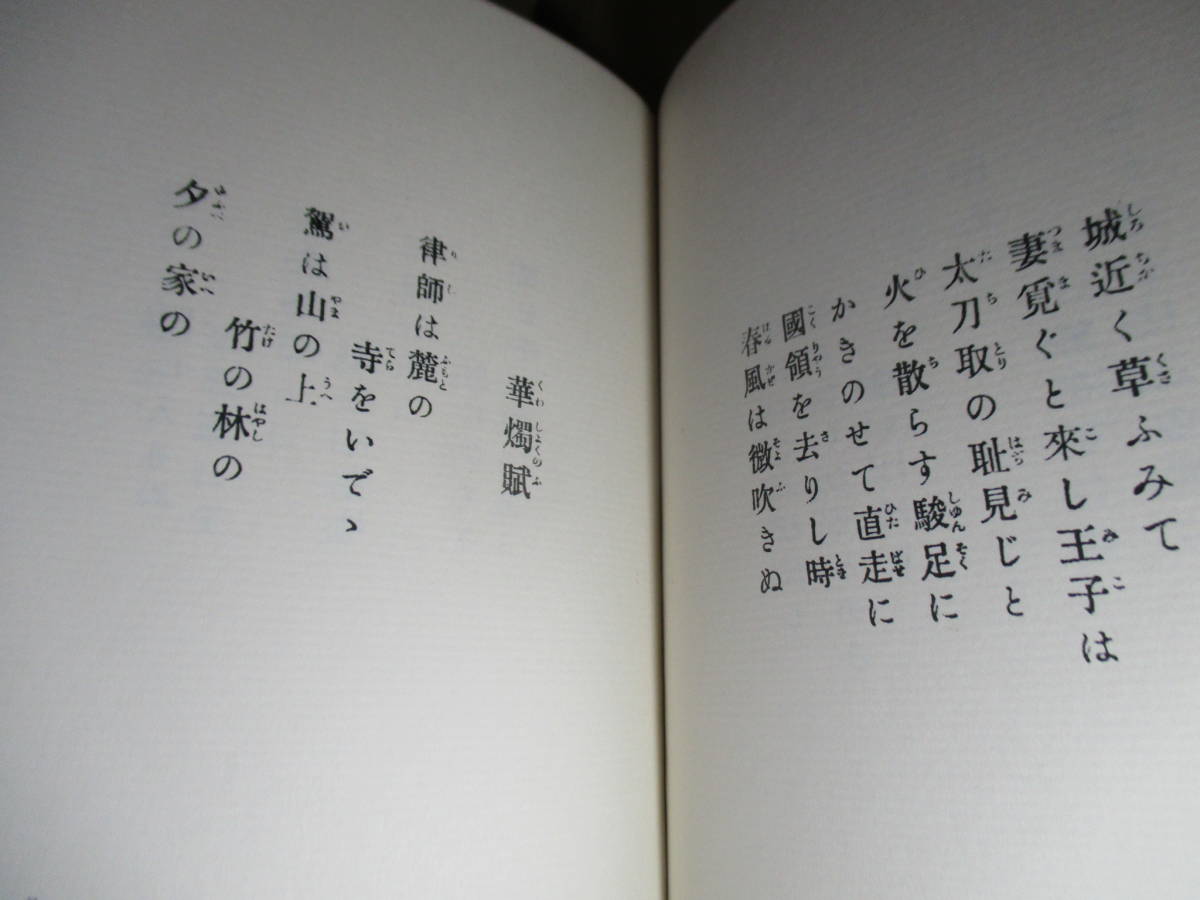 城近く草ふみて
妻覓ぐと來し王子は
太刀取の恥見じと
火を散らす駿足に
かきのせて直走に
國領を去りし時
春風は微吹きぬ
華燭賦
律師は麓の
寺をいでゝ
駕は山の上
竹の林の
夕の家の